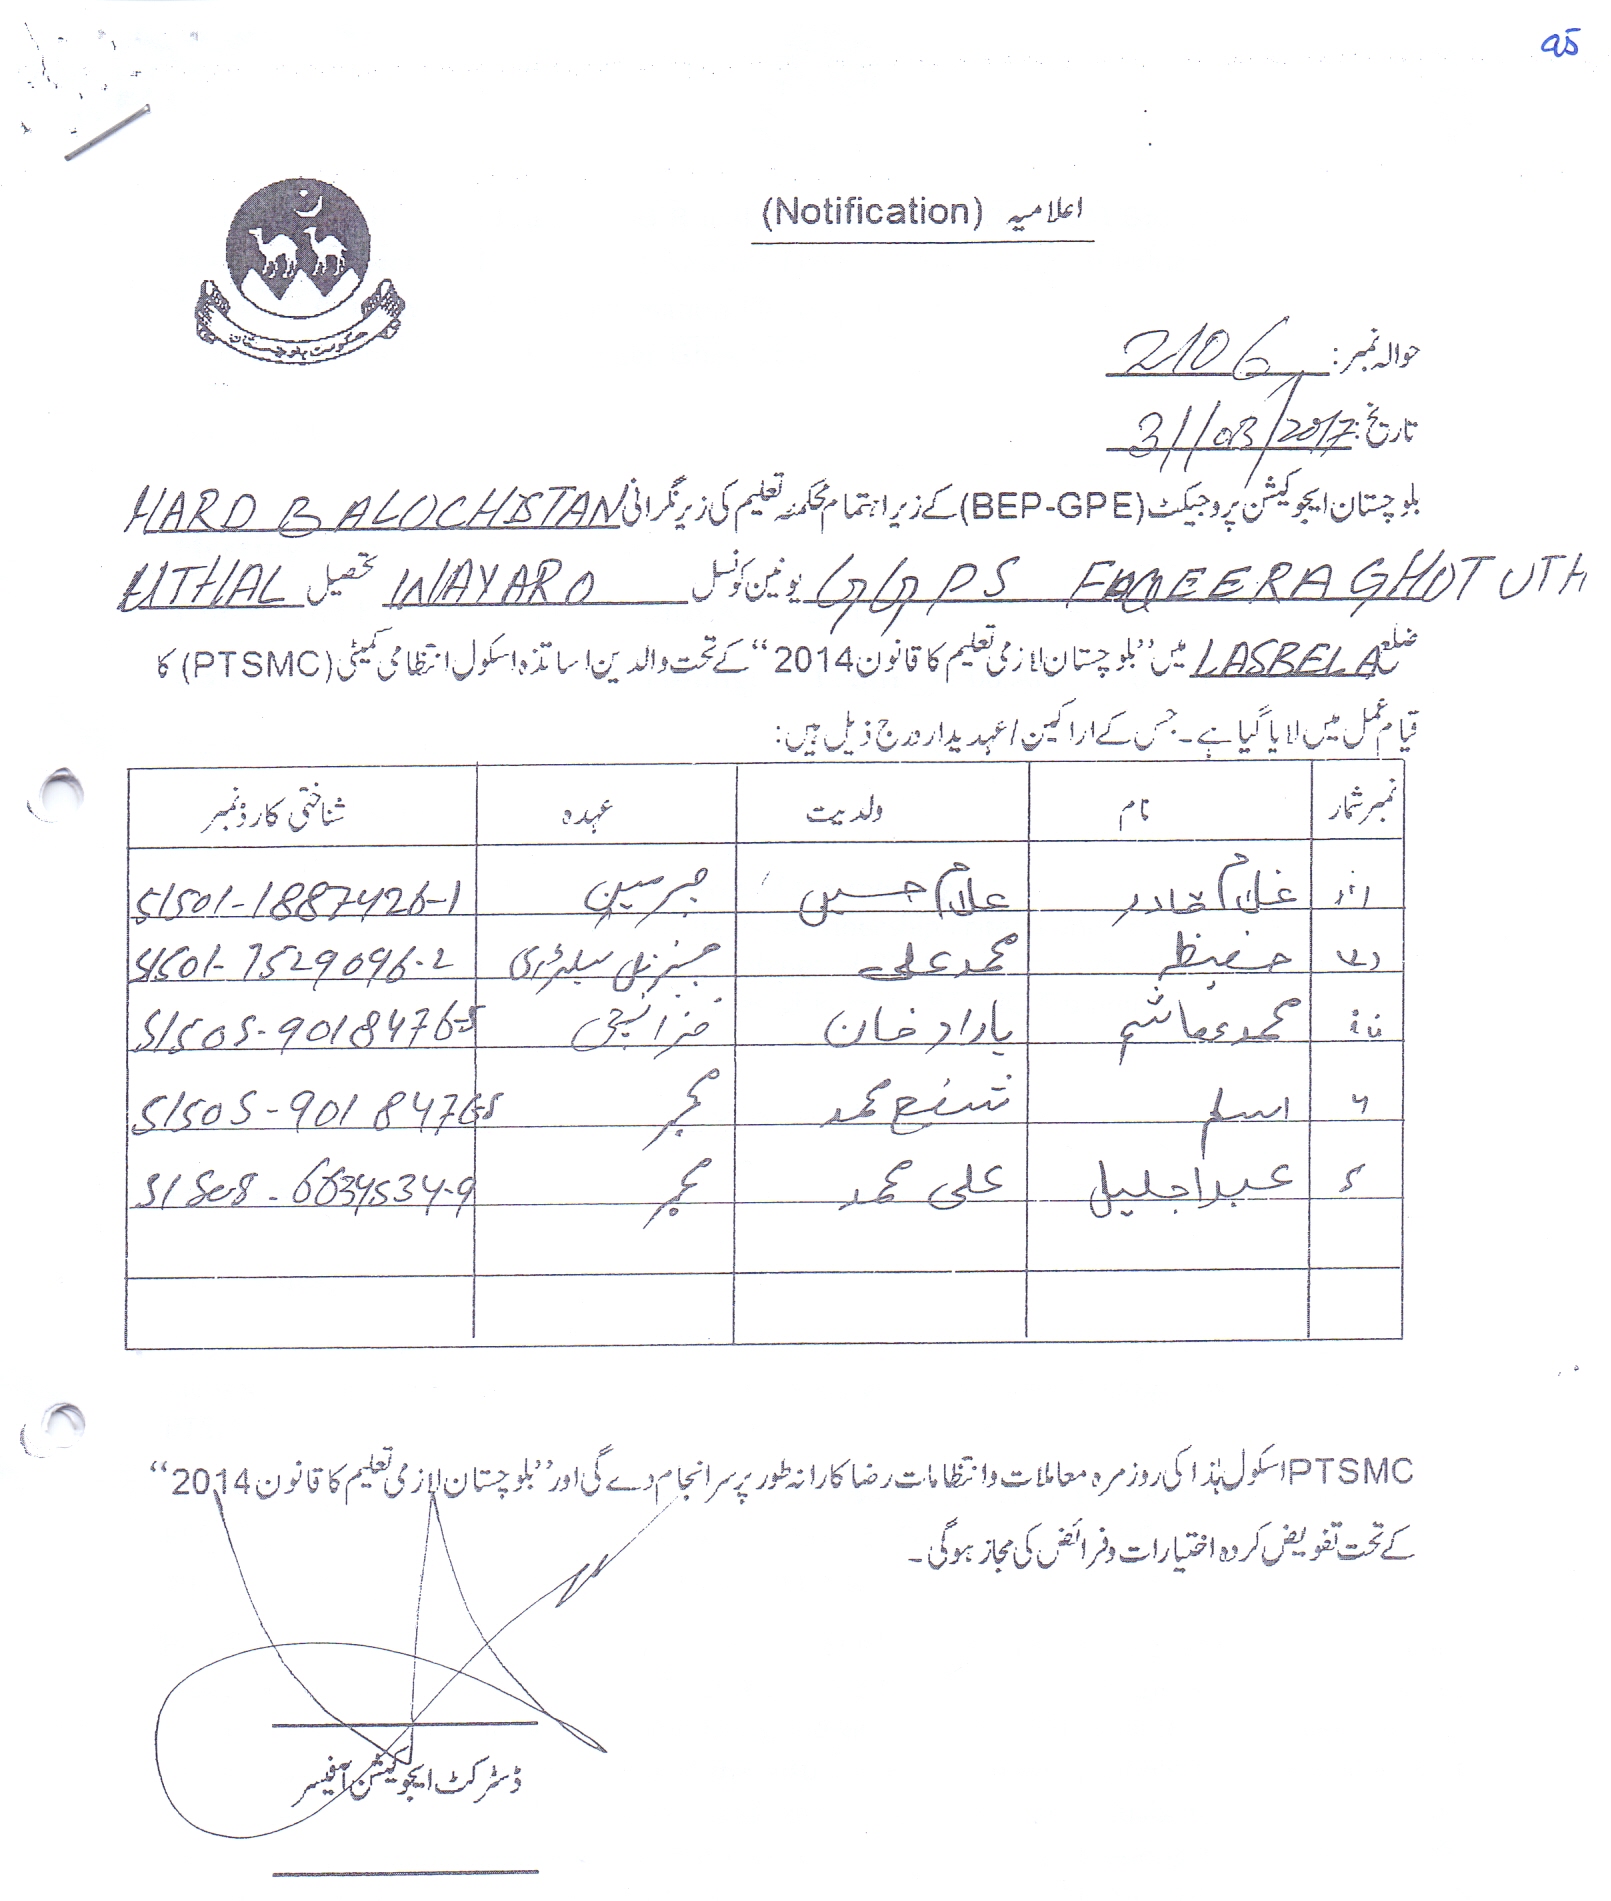 95
اعلامیہ (Notification)
حکومت بلوچستان
حوالہ نمبر: 2106
تاریخ: 31/03/2017
بلوچستان ایجوکیشن پروجیکٹ (BEP-GPE) کے زیر اہتمام محکمہ تعلیم کی زیر نگرانی HARD BALOCHISTAN
GGPS FAQEERA GHOT UTH یونین کونسل WAYARO تحصیل UTHAL
ضلع LASBELA میں ”بلوچستان لازمی تعلیم کا قانون 2014“ کے تحت والدین اساتذہ اسکول انتظامی کمیٹی (PTSMC) کا
قیام عمل میں لایا گیا ہے۔ جس کے اراکین/عہدیدار درج ذیل ہیں:
نمبر شمار نام ولدیت عہدہ شناختی کارڈ نمبر
غلام قادر غلام حسین چیرمین 51501-1887426-1
حفیظ محمد علی جنرل سیکرٹری 51501-7529096-2
محمد ہاشم یاراد خان خزانچی 51505-9018476-5
۴ اسلم شفیع محمد ممبر 51505-9018476-5
۵ عبداجلیل علی محمد ممبر 6634534-9
PTSMC اسکول ہٰذا کی روزمرہ معاملات و انتظامات رضاکارانہ طور پر سرانجام دے گی اور ”بلوچستان لازمی تعلیم کا قانون 2014“
کے تحت تفویض کردہ اختیارات و فرائض کی مجاز ہوگی۔
ڈسٹرکٹ ایجوکیشن آفیسر